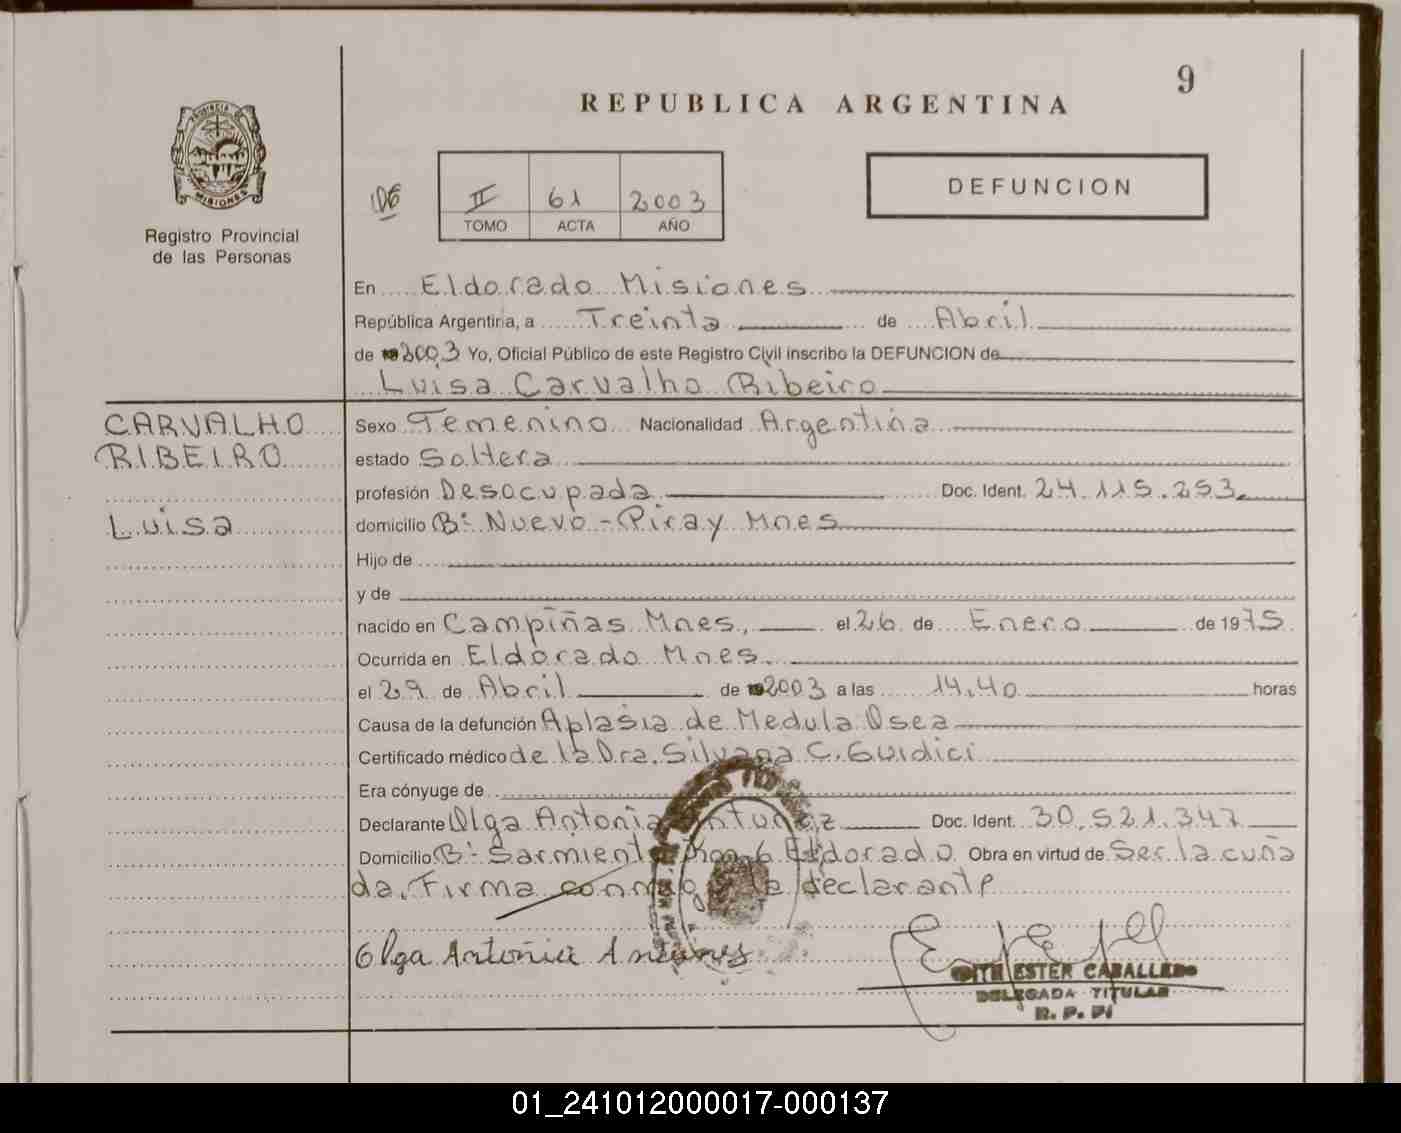 9
REPUBLICA ARGENTINA
PROVINCIA DE MISIONES
Registro Provincial
de las Personas
II 61 2003
TOMO ACTA AÑO
DEFUNCION
En Eldorado Misiones
República Argentina, a Treinta de Abril
de 2003 Yo, Oficial Público de este Registro Civil inscribo la DEFUNCION de
Luisa Carvalho Ribeiro
CARVALHO
RIBEIRO
Luisa
Sexo Femenino Nacionalidad Argentina
estado Soltera
profesión Desocupada Doc. Ident. 24.115.253
domicilio B: Nuevo - Piray Mnes
Hijo de
y de
nacido en Campiñas Mnes, el 26 de Enero de 1975
Ocurrida en Eldorado Mnes.
el 29 de Abril de 2003 a las 14,40 horas
Causa de la defunción Aplasia de Medula Osea
Certificado médico de la Dra. Silvana C. Guidici
Era cónyuge de
Declarante Olga Antonia Doc. Ident. 30.521.347
Domicilio B: Sarmiento 6 Eldorado Obra en virtud de Ser la cuña
da. Firma la declarante
Olga Antonia Antunes
EDITH ESTER CABALLERO
DELEGADA TITULAR
R. P. P.
01_241012000017-000137